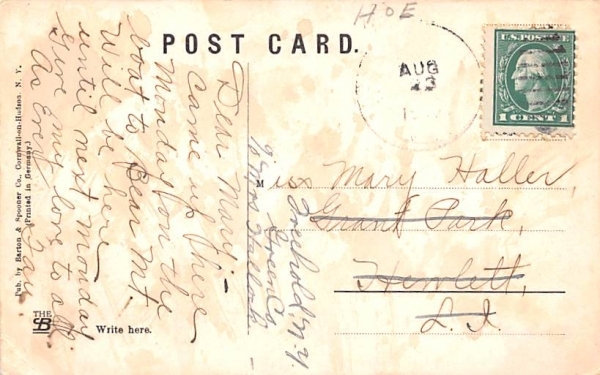 HOE
POST CARD.
AUG
23
U.S. POSTAGE
1 CENT 1
Dear Mary:-
Came up here
Monday on the
boat to Bear Mt.
Will be here
until next Monday
Give Emy love to all
As Ever
Miss Mary Haller,
Grant Park,
Hewlett,
L. I.
Freehold, N.Y.
Green Co.
Pub. by Barton & Spooner Co., Cornwall-on-Hudson, N. Y.
(Printed in Germany.)
THE
Write here.